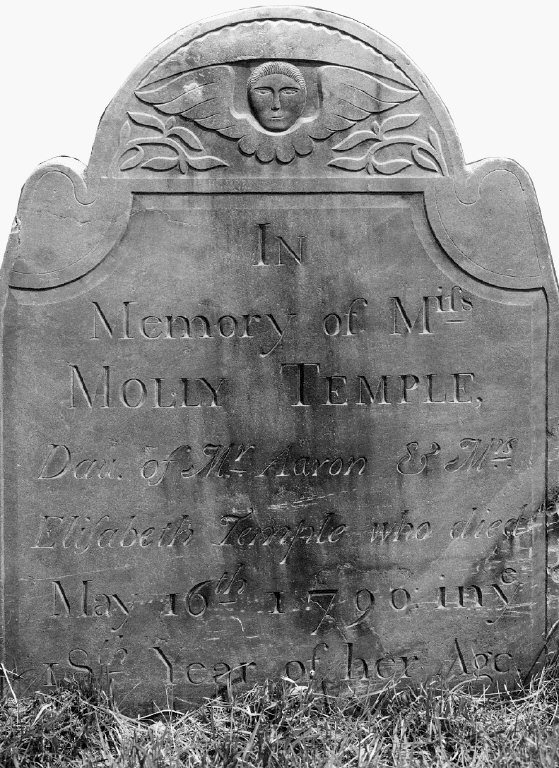 In
Memory of Miſs
MOLLY TEMPLE,
Dau. of Mr. Aaron & Mrs.
Eliſabeth Temple who died
May 16th 1790. in ye
18th Year of her Age.